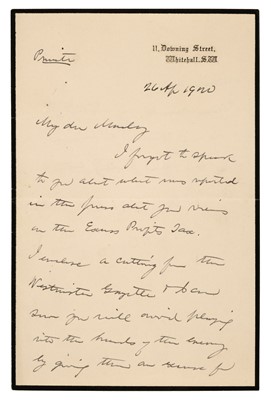 Private
11, Downing Street,
Whitehall, S.W.
26 Ap 1920
My dear
I forgot to speak
to you about what was reported
in the press about your views
on the Excess Profits Tax.
I enclose a cutting from the
Westminster Gazette & I am
sure you will avoid playing
into the hands of the enemy
by giving them an excuse for